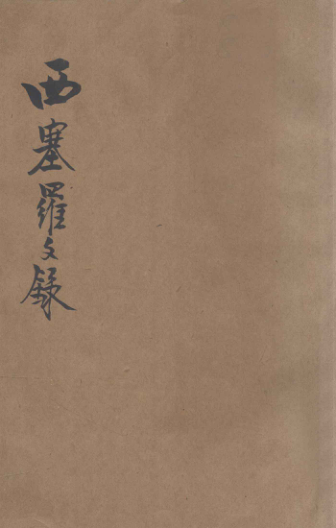 西塞羅文錄